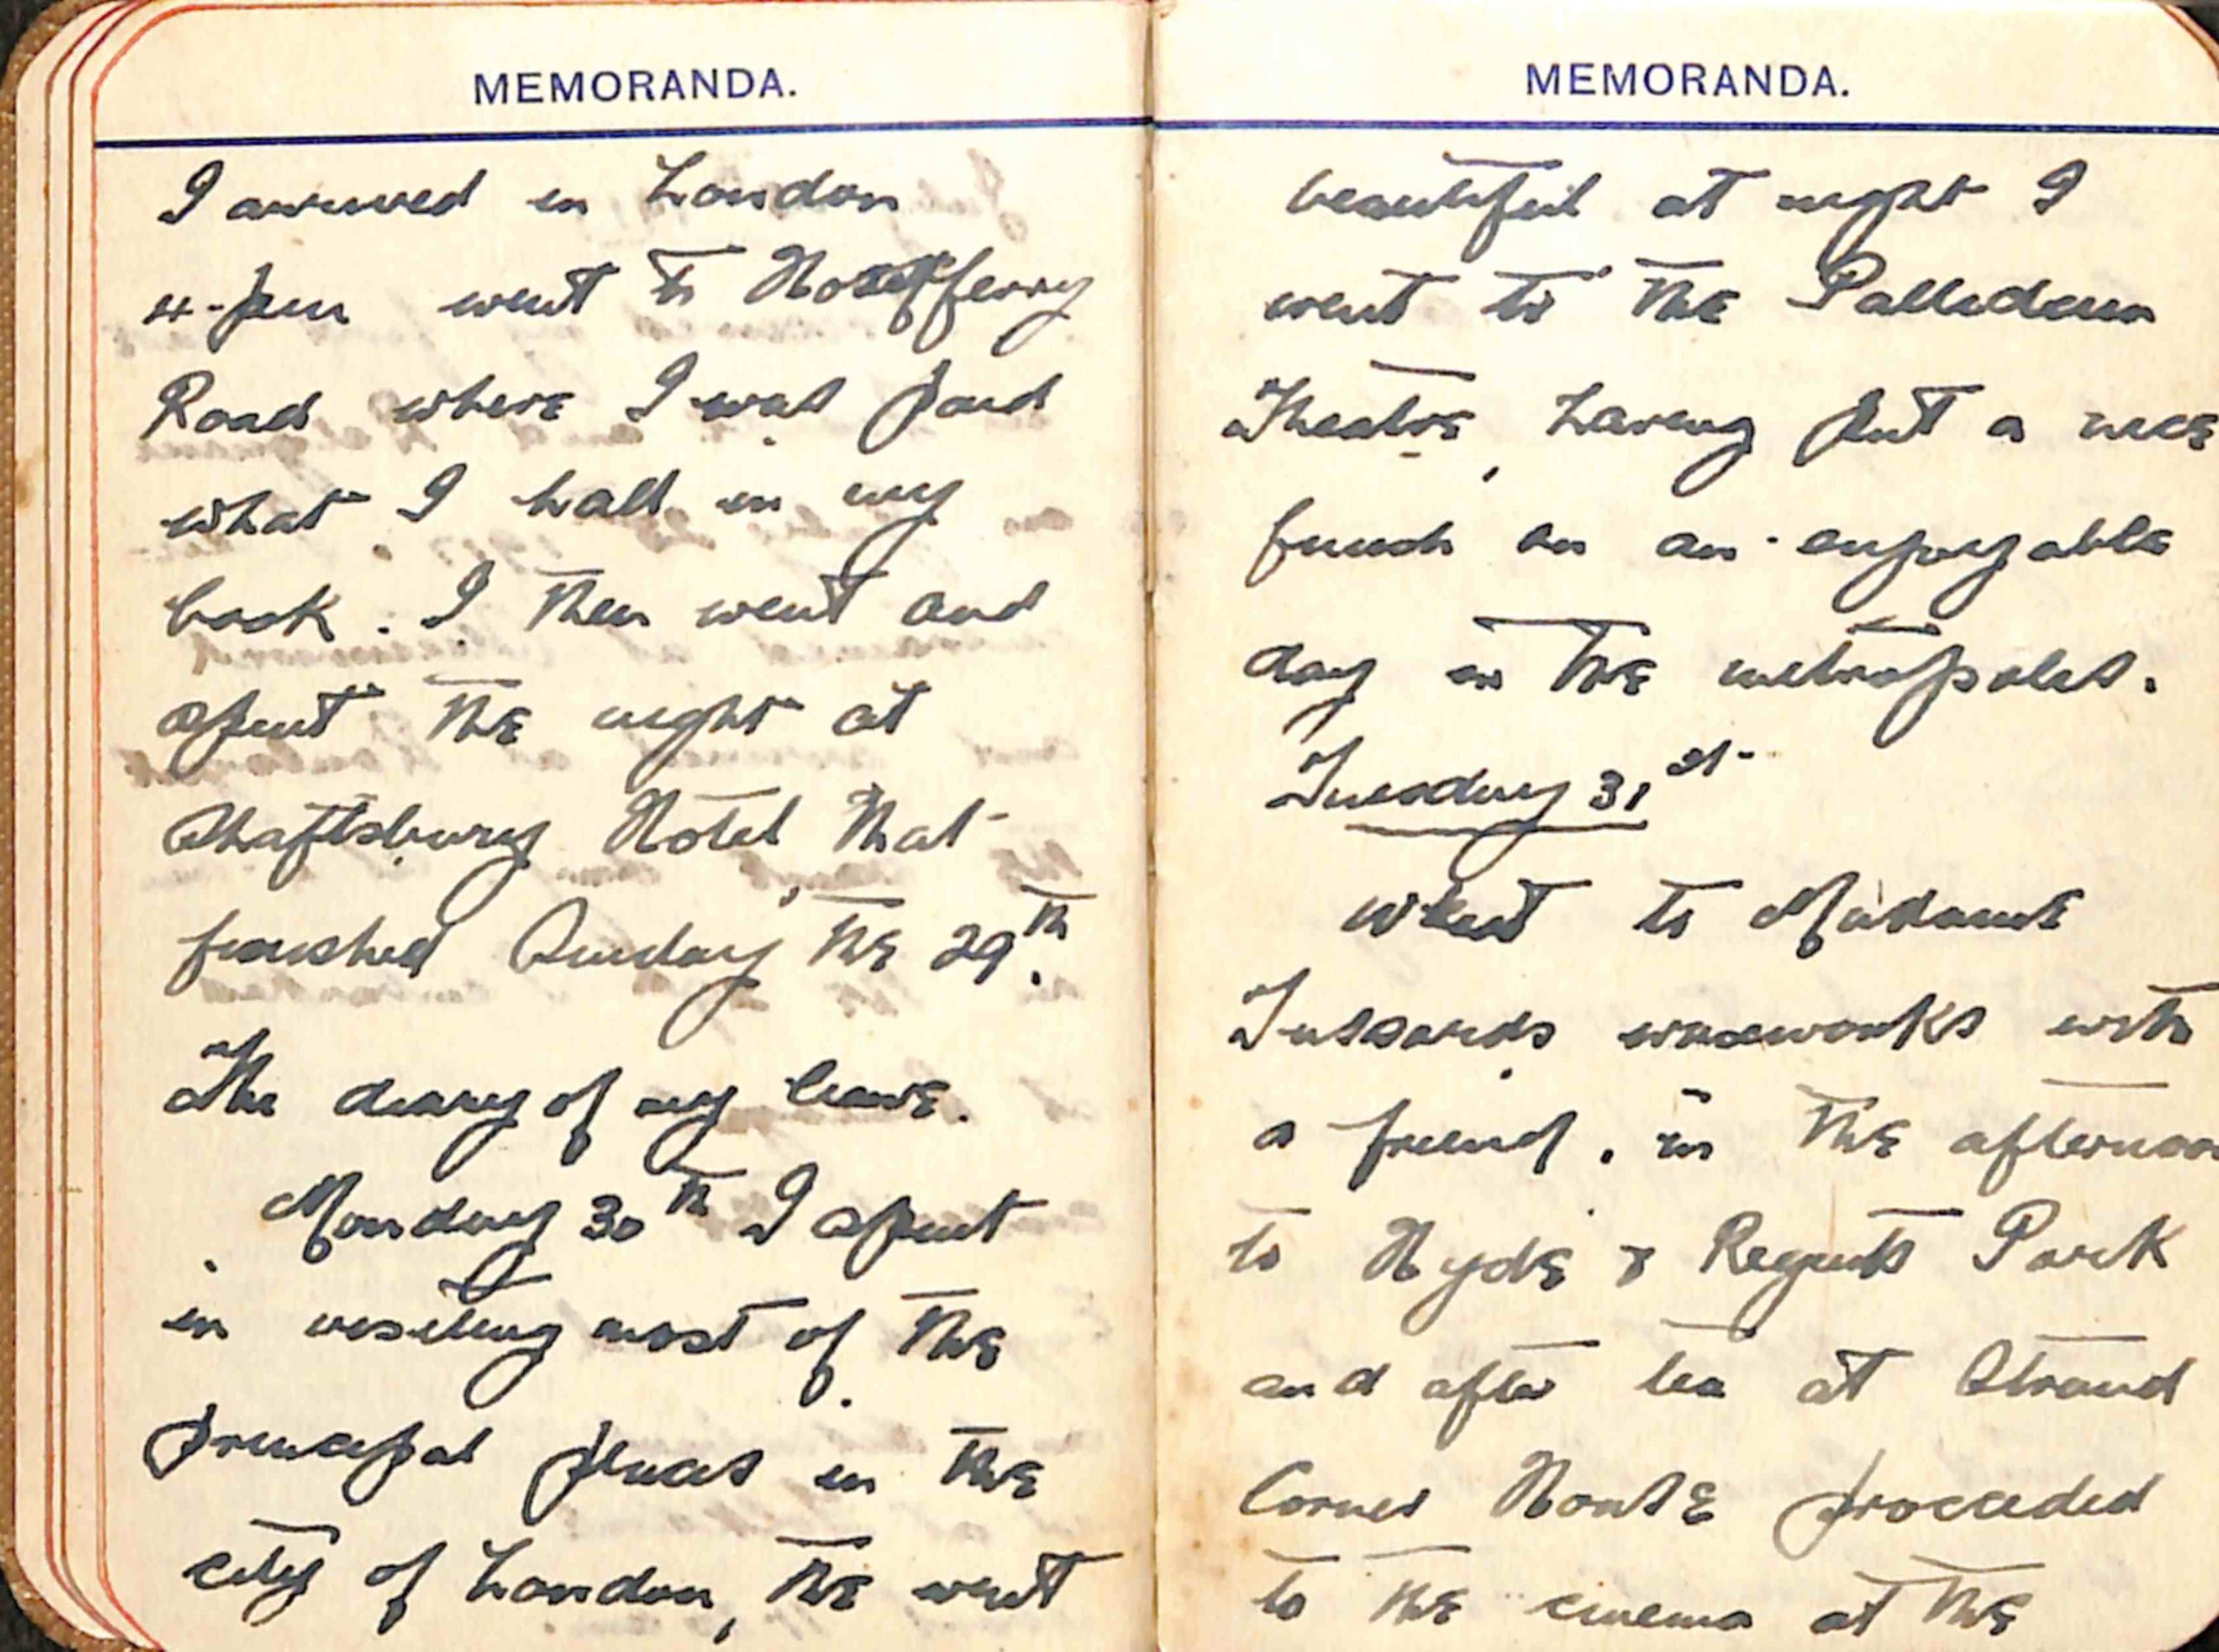 MEMORANDA.
I arrived in London
4-pm went to Horseferry
Road where I was paid
what I had in my
book. I then went and
spent the night at
Shaftsbury Hotel that
finished Sunday the 29th.
The diary of my leave.
Monday 30th I spent
in visiting most of the
principal places in the
city of London, the went
MEMORANDA.
beautiful at night I
went to the Palladium
Theatre, having put a nice
finish on an enjoyable
day in the metropolis.
Tuesday 31st
Went to Madame
Tussards waxworks with
a friend, in the afternoon
to Hyde & Regents Park
and after tea at Strand
Corner House proceeded
to the cinema at the